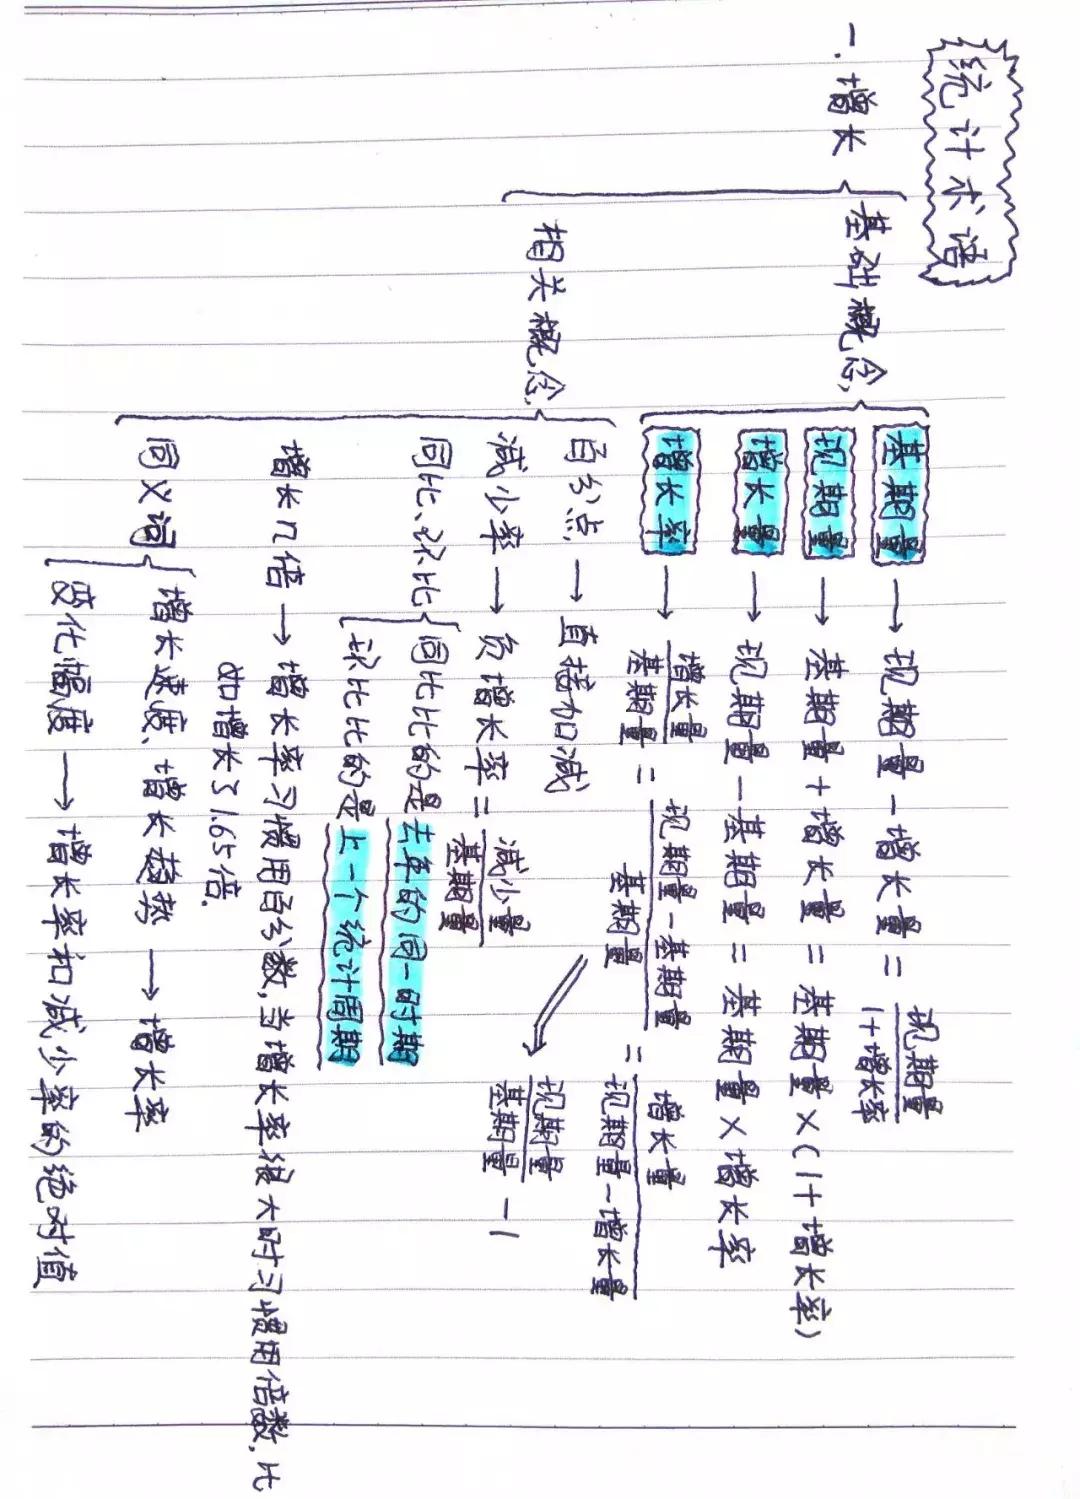 统计术语
一.增长
基础概念
基期量 → 现期量-增长量 = 现期量/1+增长率
现期量 → 基期量+增长量 = 基期量×(1+增长率)
增长量 → 现期量-基期量 = 基期量×增长率
增长率 → 增长量/基期量 = 现期量-基期量/基期量 = 增长量/现期量-增长量
现期量/基期量 -1
相关概念
百分点 → 直接加减
减少率 → 负增长率 = 减少量/基期量
同比、环比
同比比的是去年的同一时期
环比比的是上一个统计周期
增长几倍 → 增长率习惯用百分数,当增长率很大时习惯用倍数.比
如增长了1.65倍.
同义词
增长速度、增长趋势 → 增长率
变化幅度 → 增长率和减少率的绝对值